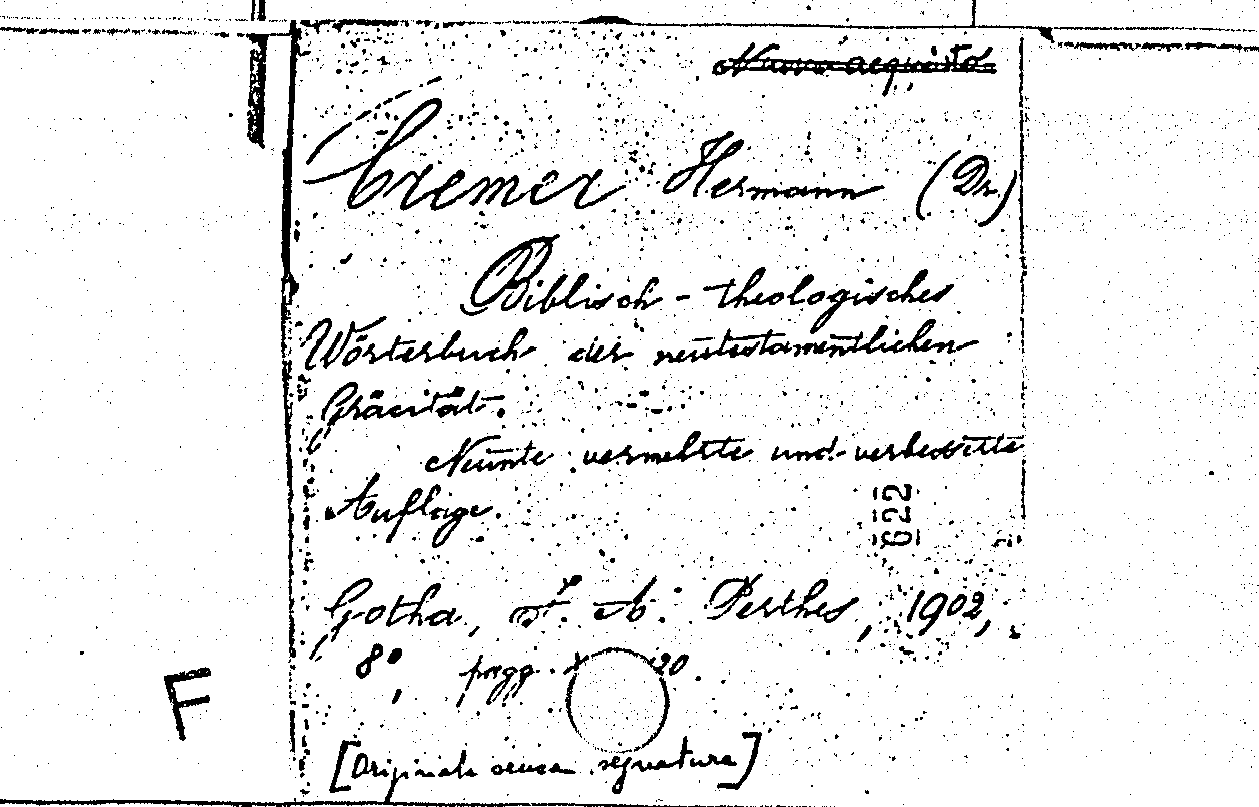 Nuovo acquisto
Cremer Hermann (Dr.)
Biblisch-theologisches
Wörterbuch der neutestamentlichen
Gräcität.
Neunte vermehrte und verbesserte
Auflage.
622
Gotha, F. A. Perthes, 1902,
8°, pagg. 20.
[Originale senza segnatura]
F